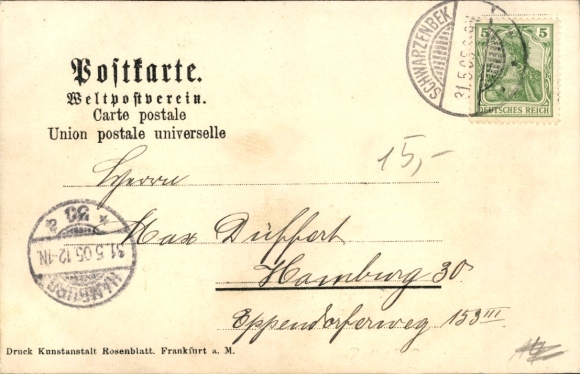 Postkarte.
Weltpostverein.
Carte postale
Union postale universelle
SCHWARZENBEK
31.5.05
5 5
DEUTSCHES REICH
15,-
Herrn
Max Düffert
Hamburg 30
Eppendorferweg 153 III
HAMBURG
31.5.05.12-1N.
* 30
Druck Kunstanstalt Rosenblatt. Frankfurt a. M.